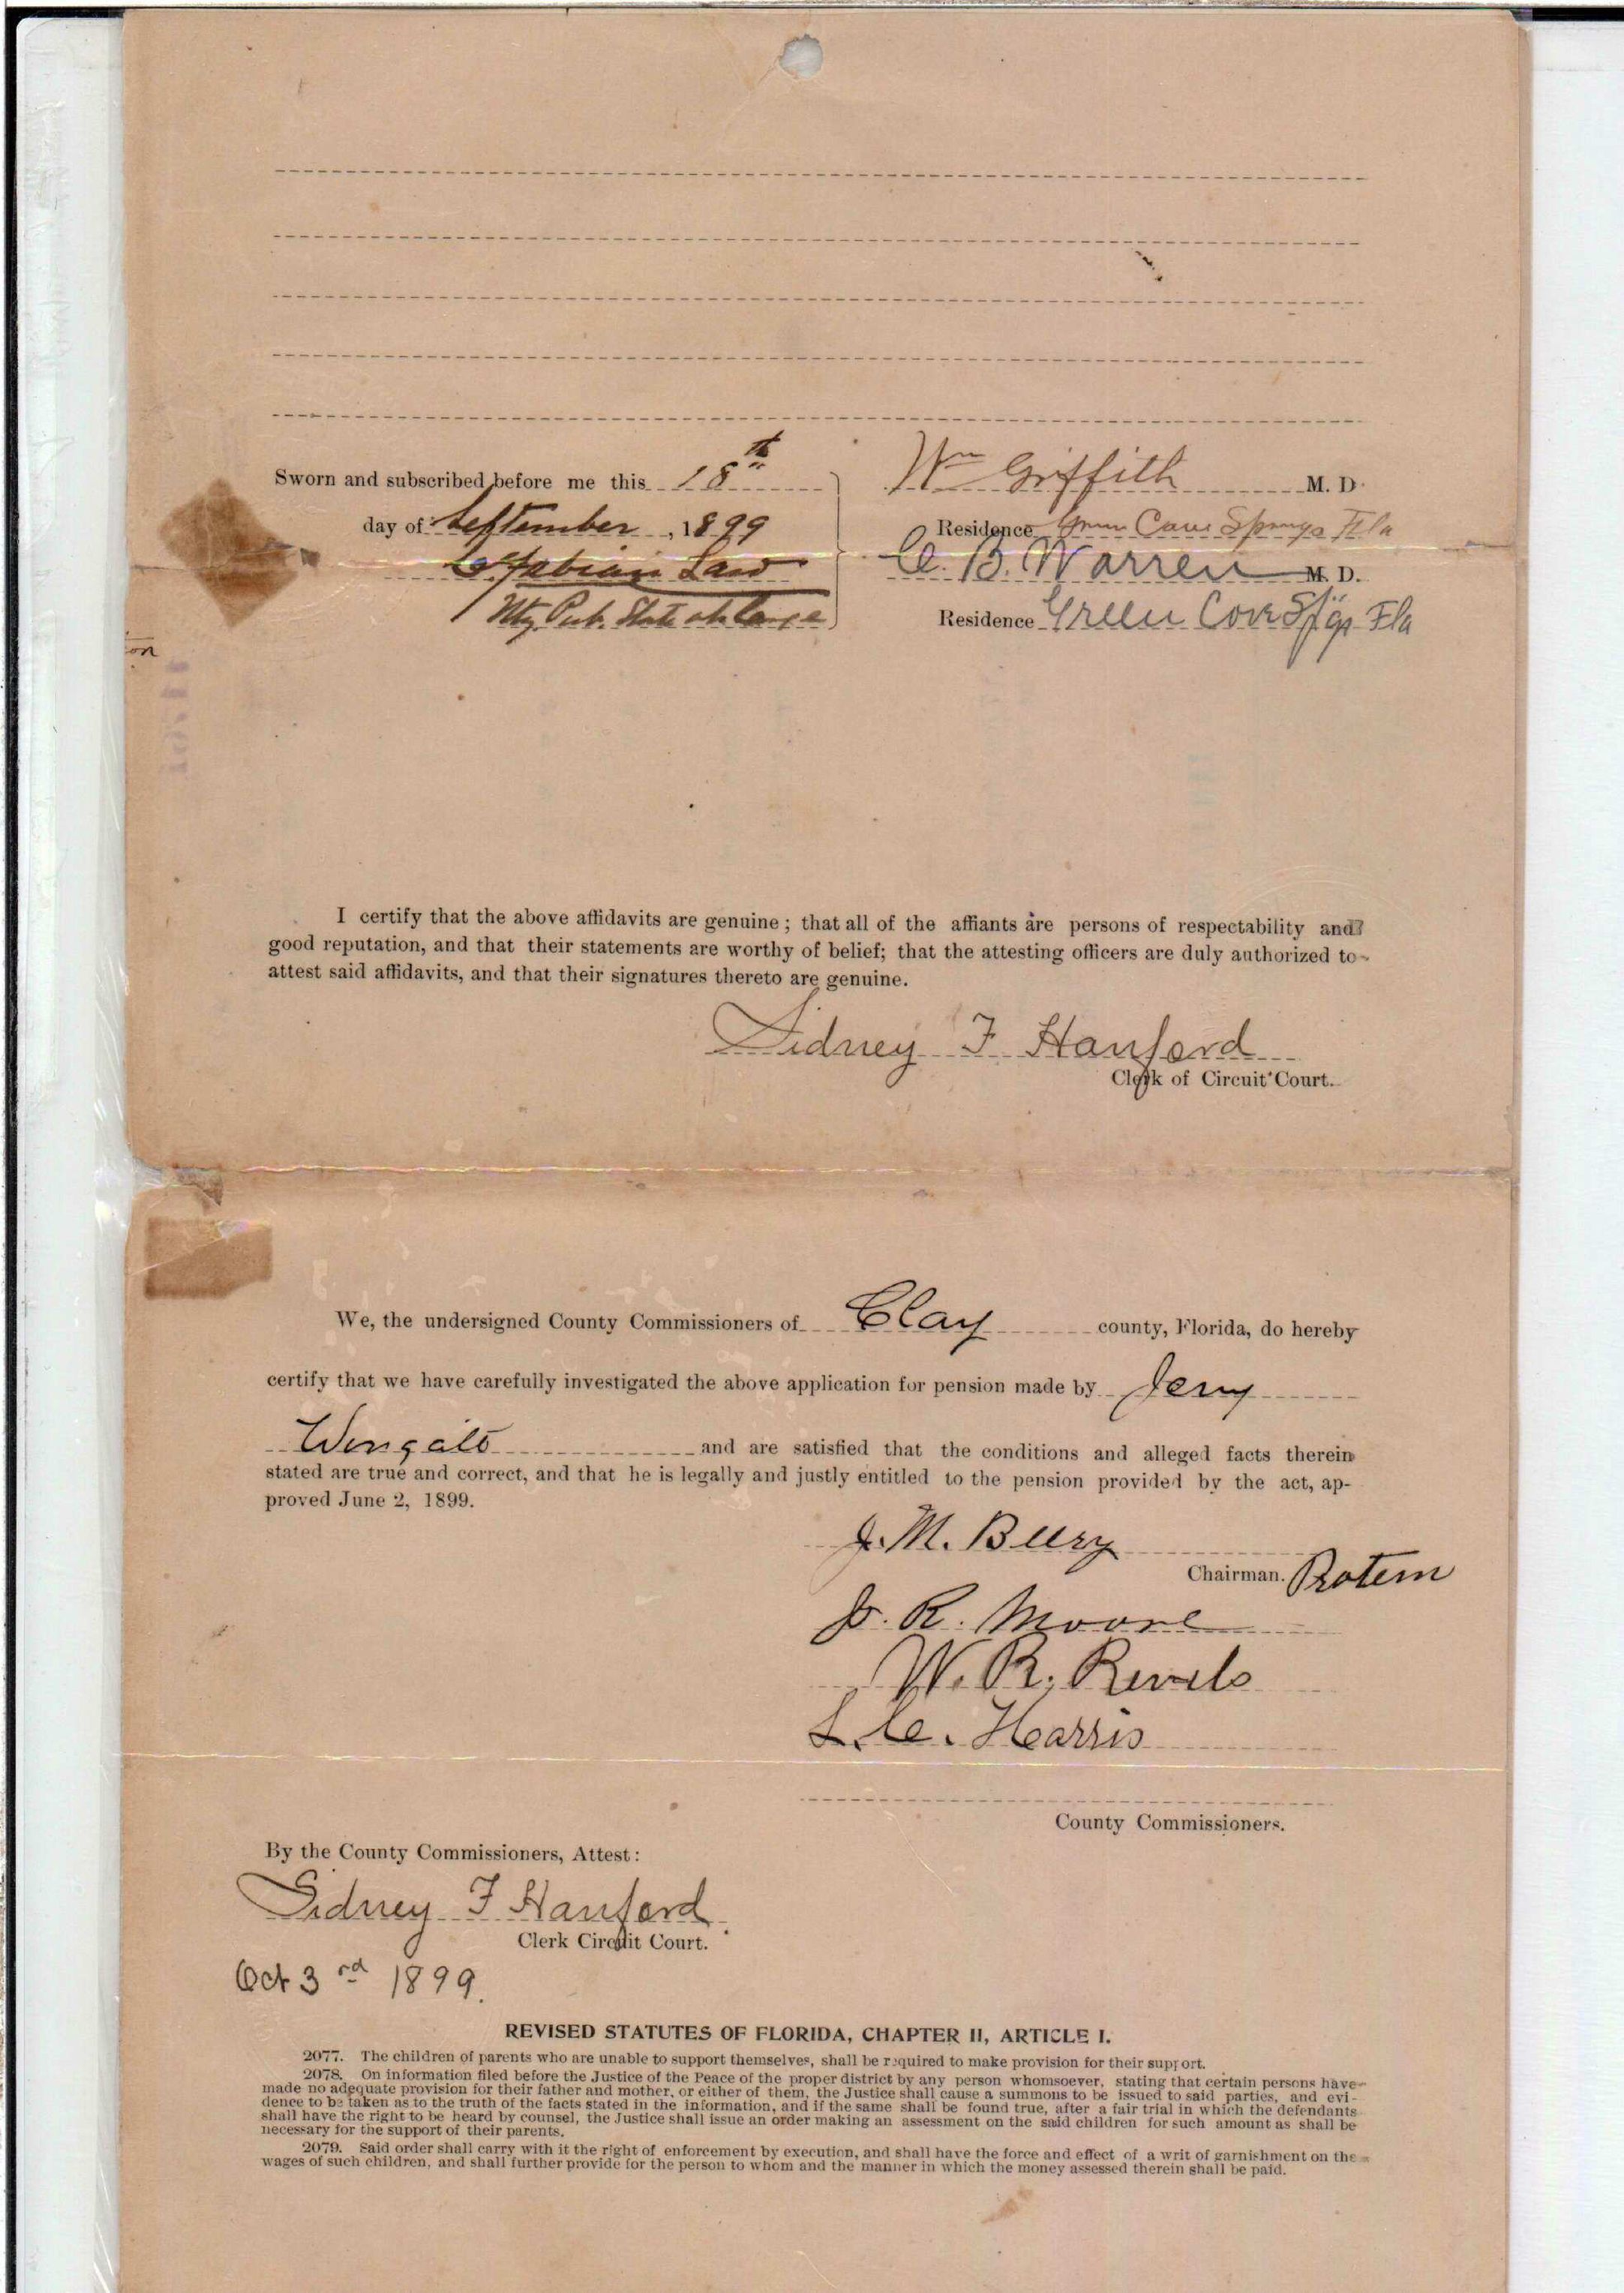 Sworn and subscribed before me this 18th
day of September, 1899
Fabian Law
Nty Pub. State at Large
Wm Griffith M. D.
Residence Green Cove Springs Fla
C. B. Warren M. D.
Residence Green Cove Spgs Fla
on
I certify that the above affidavits are genuine; that all of the affiants are persons of respectability and
good reputation, and that their statements are worthy of belief; that the attesting officers are duly authorized to
attest said affidavits, and that their signatures thereto are genuine.
Sidney F Hanford
Clerk of Circuit Court.
We, the undersigned County Commissioners of Clay county, Florida, do hereby
certify that we have carefully investigated the above application for pension made by Jerry
Wingate and are satisfied that the conditions and alleged facts therein
stated are true and correct, and that he is legally and justly entitled to the pension provided by the act, ap-
proved June 2, 1899.
J. M. Beery
Chairman. Protem
J. R. Moore
W. R. Revels
L. C. Harris
County Commissioners.
By the County Commissioners, Attest:
Sidney F Hanford
Clerk Circuit Court.
Oct 3rd 1899.
REVISED STATUTES OF FLORIDA, CHAPTER II, ARTICLE I.
2077. The children of parents who are unable to support themselves, shall be required to make provision for their support.
2078. On information filed before the Justice of the Peace of the proper district by any person whomsoever, stating that certain persons have
made no adequate provision for their father and mother, or either of them, the Justice shall cause a summons to be issued to said parties, and evi-
dence to be taken as to the truth of the facts stated in the information, and if the same shall be found true, after a fair trial in which the defendants
shall have the right to be heard by counsel, the Justice shall issue an order making an assessment on the said children for such amount as shall be
necessary for the support of their parents.
2079. Said order shall carry with it the right of enforcement by execution, and shall have the force and effect of a writ of garnishment on the
wages of such children, and shall further provide for the person to whom and the manner in which the money assessed therein shall be paid.